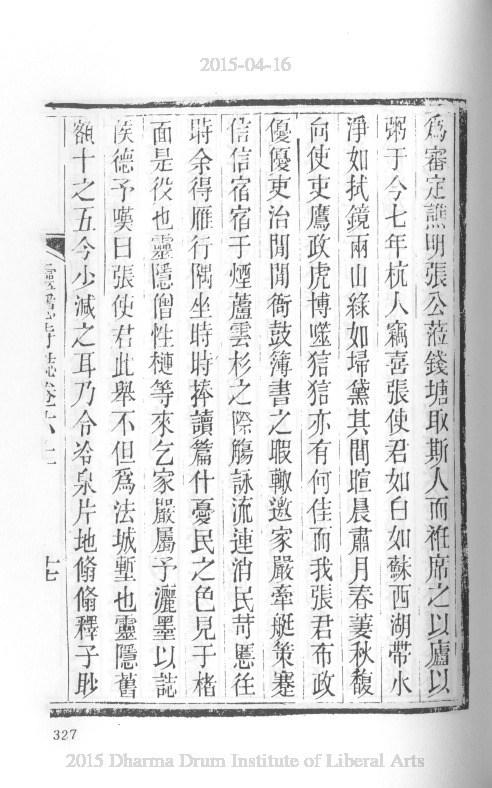 2015-04-16
爲審定譙明張公蒞錢塘取斯人而袵席之以廬以
粥于今七年杭人竊喜張使君如白如蘇西湖帶水
淨如拭鏡兩山綠如埽黛其間暄晨肅月春菱秋馥
向使吏鷹政虎博噬狺狺亦有何佳而我張君布政
優優吏治閒閒衙鼓簿書之暇輙邀家嚴牽艇策蹇
信信宿宿于煙蘆雲杉之際觴詠流連消民苛慝往
時余得雁行隅坐時時捧讀篇什憂民之色見于楮
面是役也靈隱僧性槤等來乞家嚴屬予灑墨以誌
侯德予嘆曰張使君此舉不但爲法城塹也靈隱舊
額十之五今少減之耳乃令冷泉片地翛翛釋子眇
十七
327
2015 Dharma Drum Institute of Liberal Arts